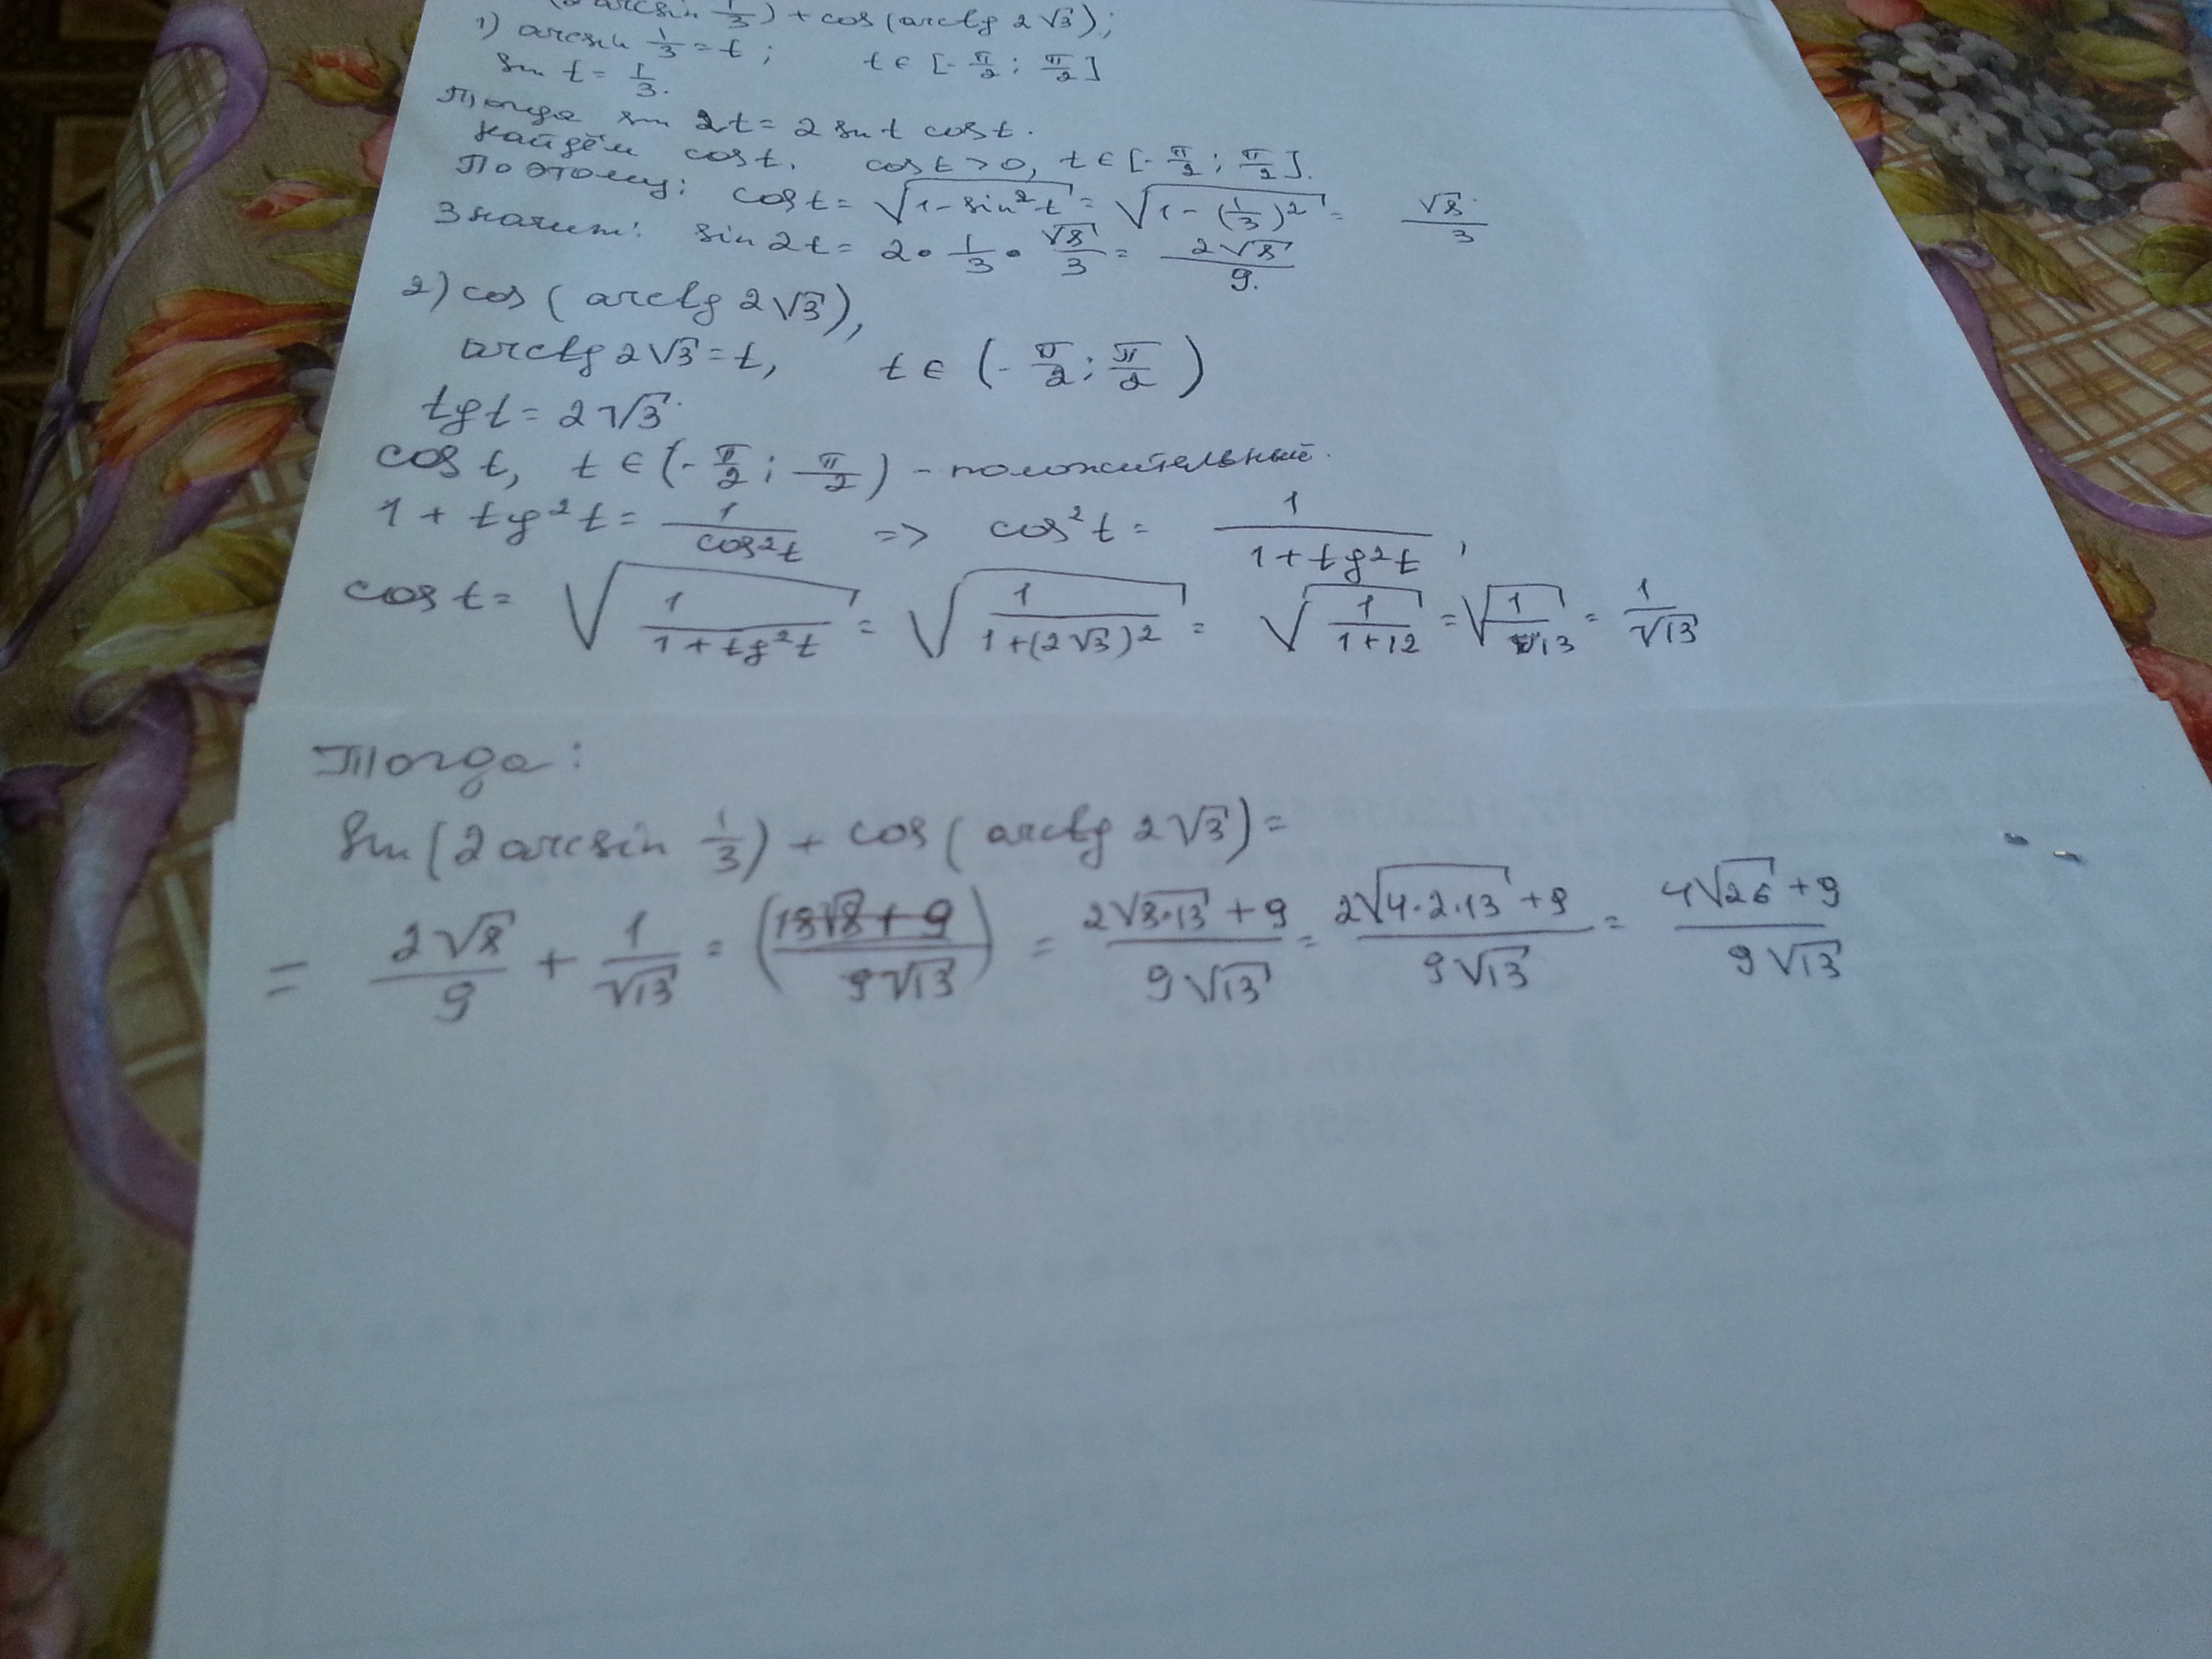 (2 arcsin 1/3) + cos (arctg 2√3);
1) arcsin 1/3 = t; t ∈ [-π/2; π/2]
sin t = 1/3.
Тогда sin 2t = 2 sin t cos t.
найдём cos t. cos t > 0, t ∈ [-π/2; π/2].
Поэтому: cos t = √(1 - sin² t) = √(1 - (1/3)²) = √8/3
Значит: sin 2t = 2 • 1/3 • √8/3 = 2√8/9.
2) cos (arctg 2√3),
arctg 2√3 = t, t ∈ (-π/2; π/2)
tg t = 2√3.
cos t, t ∈ (-π/2; π/2) - положительный.
1 + tg² t = 1/cos² t => cos² t = 1/(1 + tg² t),
cos t = √(1/(1 + tg² t)) = √(1/(1 + (2√3)²)) = √(1/(1+12)) = √(1/13) = 1/√13
Тогда:
Sin (2 arcsin 1/3) + cos (arctg 2√3) =
= 2√8/9 + 1/√13 = ((18√8 + 9)/(9√13)) = (2√(8•13) + 9)/(9√13) = (2√(4•2•13) + 9)/(9√13) = (4√26 + 9)/(9√13)